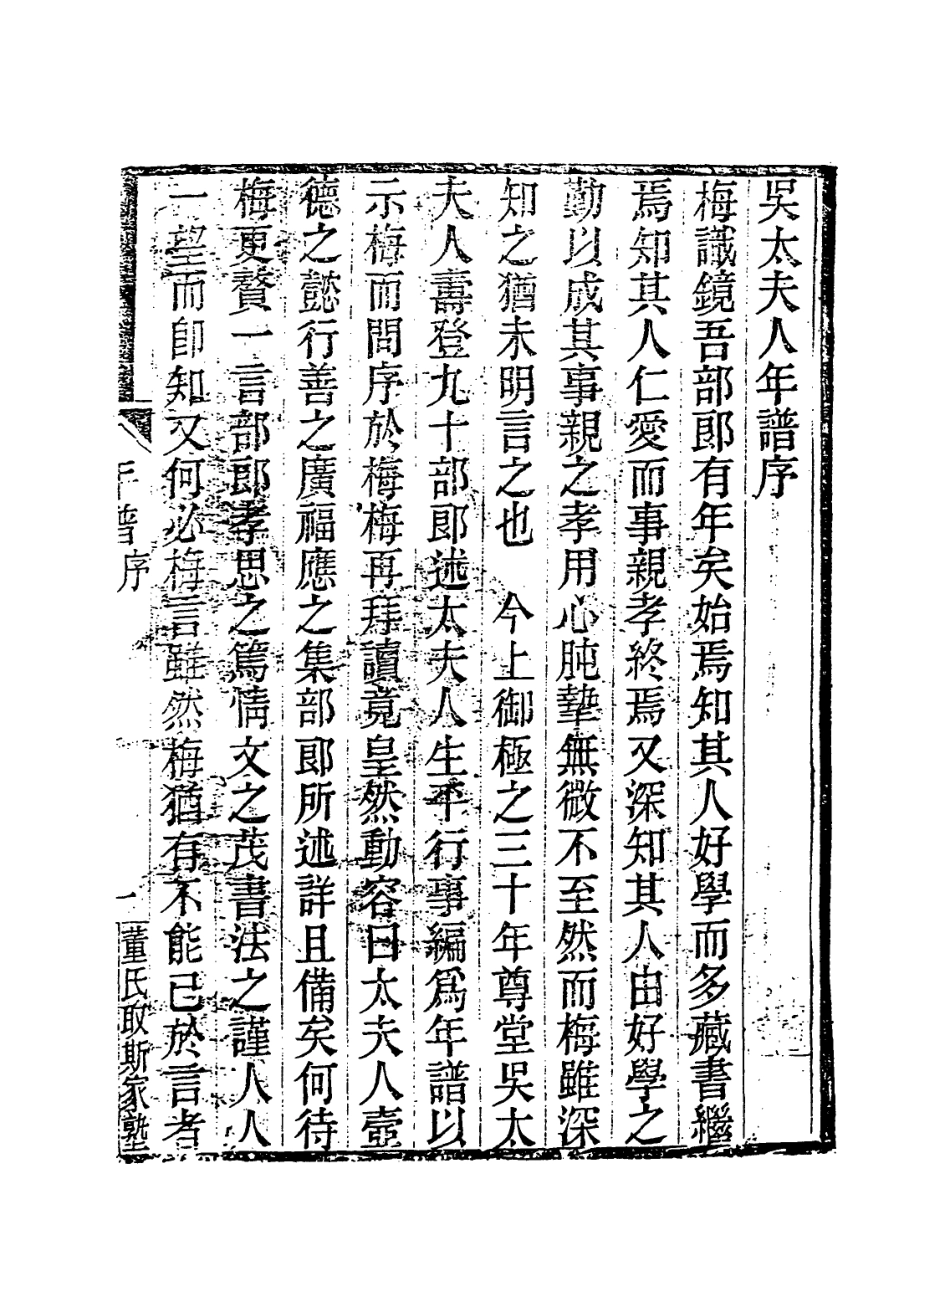 吳太夫人年譜序
梅識鏡吾部郎有年矣始焉知其人好學而多藏書繼
焉知其人仁愛而事親孝終焉又深知其人由好學之
勤以成其事親之孝用心肫摯無微不至然而梅雖深
知之猶未明言之也　今上御極之三十年尊堂吳太
夫人壽登九十部郎述太夫人生平行事編爲年譜以
示梅而問序於梅梅再拜讀竟皇然動容曰太夫人壼
德之懿行善之廣福應之集部郎所述詳且備矣何待
梅更贅一言部郎孝思之篤情文之茂書法之謹人人
一望而卽知又何必梅言雖然梅猶有不能已於言者
年譜序
一
董氏取斯家塾